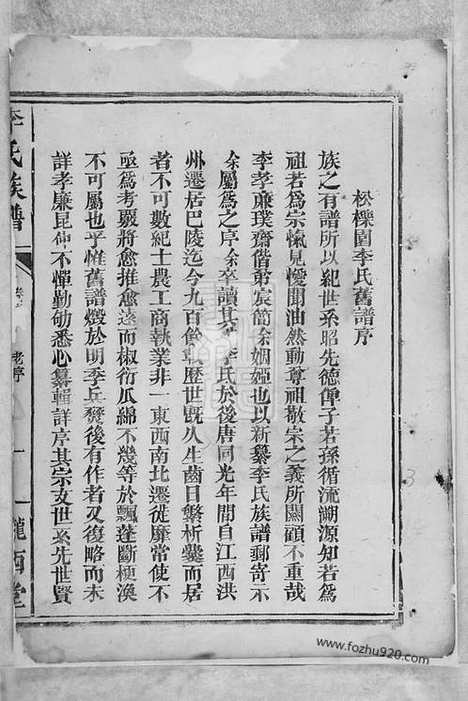 松櫟園李氏舊譜序
族之有譜所以紀世系昭先德俾子若孫循流溯源知若為
祖若為宗愾見僾聞油然動尊祖敬宗之義所關顧不重哉
李孝亷璞齋偕弟宸簡余姻婭也以新纂李氏族譜郵寄示
余屬為之序余卒讀其李氏於後唐同光年間自江西洪
州遷居巴陵迄今九百餘載歷世既久生齒日繁析爨而居
者不可數紀士農工商執業非一東西南北遷徙靡常使不
亟為考覈將愈推愈遠而椒衍瓜綿不幾等於飄蓬斷梗渙
不可屬也乎惟舊譜燬於明季兵燹後有作者又復略而未
詳孝廉昆仲不憚勤劬悉心纂輯詳序其宗支世系先世賢
李氏族譜
老序
隴西堂
www.fozhu920.com